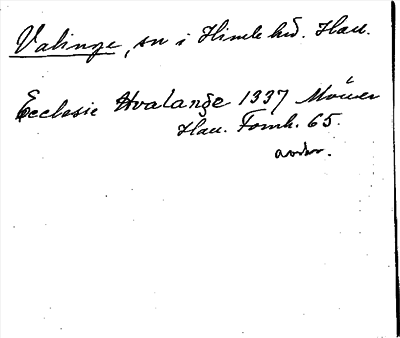 Valinge, sn i Himle hd. Hall.
Ecclesie Hvalange 1337 Möller
Hall. Fornh. 65.
avskr.